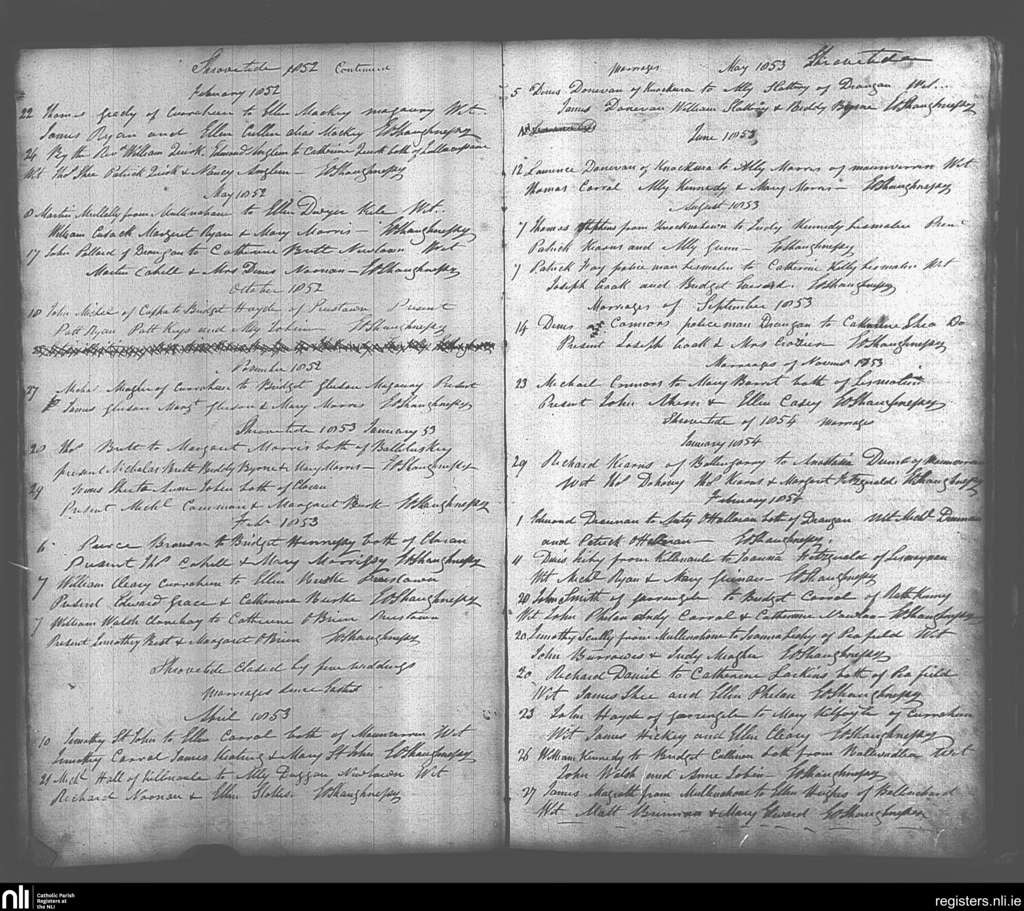 Shrovetide 1852 Continued
February 1852
22 Thomas Grady of Curraheen to Ellen Mackey Magowry Wit
James Ryan and Ellen Cullen alias Mackey WShaughnessy
24 By the Revd William Quirk. Edmond Anglim to Catherine Quirk both of
Wit Thos Shee Patrick Quirk & Nancy Anglim – WShaughnessy
May 1852
8 Martin Mullally from Mullinahone to Ellen Dwyer Kile Wit..
William Cusack Margret Ryan & Mary Morris – WShaughnessy
17 John Pollard of Drangan to Catherine Britt Newtown Wit
Martin Cahill & Mrs Denis Noonan – WShaughnessy
October 1852
18 John Michel of Cashel to Bridget Hayde of Priestown Present
Patt Ryan Patt Keys and Ally Tobin WShaughnessy
November 1852
27 Michl Meagher of Curraheen to Bridget Gleeson Magowry Present
James Gleeson Margt Gleeson & Mary Morris WShaughnessy
Shrovetide 1853 January 53
20 Thos Britt to Margaret Morris both of
present Nicholas Britt Biddy Byrne & Mary Morris – WShaughnessy
29 James to Anne Tobin both of Cloran
Present Michl & Margaret Burk WShaughnessy
Feby 1853
6 Pierce Browne to Bridget Hennessy both of Cloran
Present Thos Cahill & Mary Morrissy WShaughnessy
7 William Cleary Curraheen to Ellen Burke Priestown
Present Edward Grace & Catherine Burke WShaughnessy
7 William Walsh to Catherine O'Brien Priestown
Present Timothy Britt & Margaret O'Brien WShaughnessy
Shrovetide Closed by five weddings
Marriages Since Easter
April 1853
10 Timothy St John to Ellen Carrol both of Wit
Timothy Carrol James Keating & Mary St John WShaughnessy
21 Michl Hall of Killenaule to Ally Duggan Newtown Wit
Richard Noonan & Ellen Stokes. WShaughnessy
Marriages May 1853 Shrovetide
5 Denis Donovan of Knockura to Ally Slattery of Drangan Wit..
James Donovan William Slattery & Biddy Byrne WShaughnessy
June 1853
12 Laurence Donovan of Knockura to Ally Morris of Wit
Thomas Carrol Ally Kennedy & Mary Morris – WShaughnessy
August 1853
7 Thomas from to Judy Kennedy Lismolin
Patrick Kearns and Ally Gunn – WShaughnessy
7 Patrick Fay police man Lismolin to Catherine Kelly Lismolin Wit
Joseph Cook and Bridget WShaughnessy
Marriages of September 1853
14 Denis Connors policeman Drangan to Catherine Shea Do
Present Joseph Cook & Mrs Crozier WShaughnessy
Marriages of Novemr 1853
23 Michael Connors to Mary Barret both of Lismolin
Present John Ahern & Ellen Casey WShaughnessy
Shrovetide of 1854 Marriages
January 1854
29 Richard Kearns of Ballingarry to Anastasia
Wit Thos Doheny Thos Kearns & Margaret Fitzgerald WShaughnessy
February 1854
1 Edmond Drennan to Judy O'Halloran both of Drangan Wit Michl Drennan
and Patrick O'Halloran – WShaughnessy.
11 Denis Kirby from Killenaule to Joanna Fitzgerald of
Wit Michl Ryan & Mary – WShaughnessy
20 John Smith of Garrangle to Bridget Carrol of
Wit John Phelan Andy Carrol & Catherine WShaughnessy
20 Timothy Scully from Mullinahone to Joanna of Pea field Wit
John Burrowes & Judy Meagher WShaughnessy
20 Richard Daniel to Catherine Larkins both of Pea field
Wit James Shee and Ellen Phelan WShaughnessy
23 John Hayde of Garrangle to Mary of Curraheen
Wit James Hickey and Ellen Cleary WShaughnessy
26 William Kennedy to Bridget both from Wit
John Walsh and Anne Tobin – WShaughnessy
27 James Magrath from Mullinahone to Ellen Hughes of
Wit Matt Brennan & Mary WShaughnessy
nli
Catholic Parish
Registers at
the NLI
registers.nli.ie